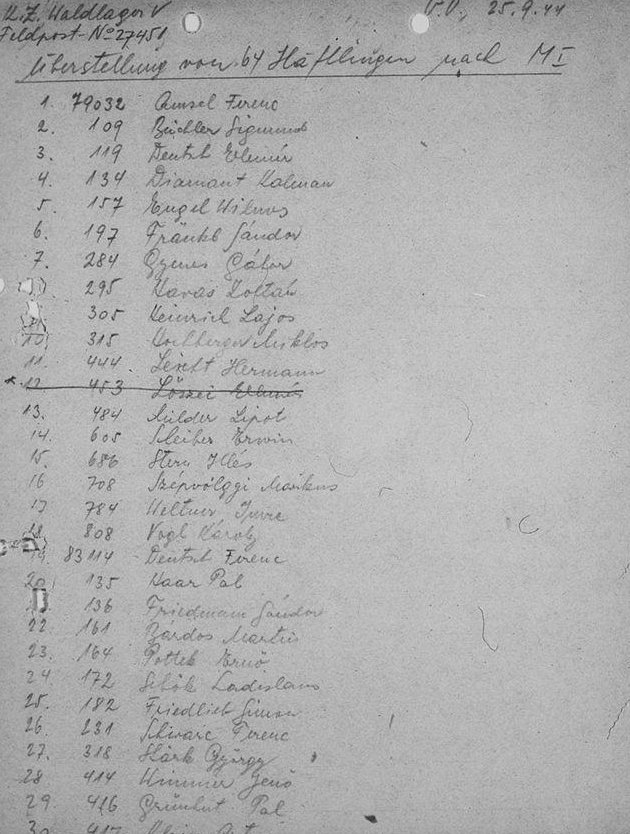 K.Z. Waldlager V V.V., 25.9.44
Feldpost-No 27451
Überstellung von 64 Häftlingen nach M I
1. 79032 Amsel Ferenc
2. 109 Büchler Sigmund
3. 119 Deutsch Elemér
4. 134 Diamant Kalman
5. 157 Engel Vilmos
6. 197 Fränkl Sándor
7. 284 Gyenes Gábor
295 Havas Zoltán
305 Heinrich Lajos
10. 315 Hochberger Miklos
11. 444 Hermann
* 12. 453 Elemér
13. 484 Lipot
14. 605 Schreiber Erwin
15. 686 Stern Illés
16 708 Szépvölgyi Markus
17 784 Weltner Imre
18. 808 Vogl Károly
19. 83114 Deutsch Ferenc
20. 135 Haar Pal
136 Friedmann Sándor
22 161 Bárdos Martin
23. 164 Pollak Ernö
24 172 Sebök Ladislaus
25. 182 Friedlieb Simon
26. 231 Schwarc Ferenc
27. 318 Stark György
28 414 Wimmer Jenö
29 416 Grünhut Pal
30 417